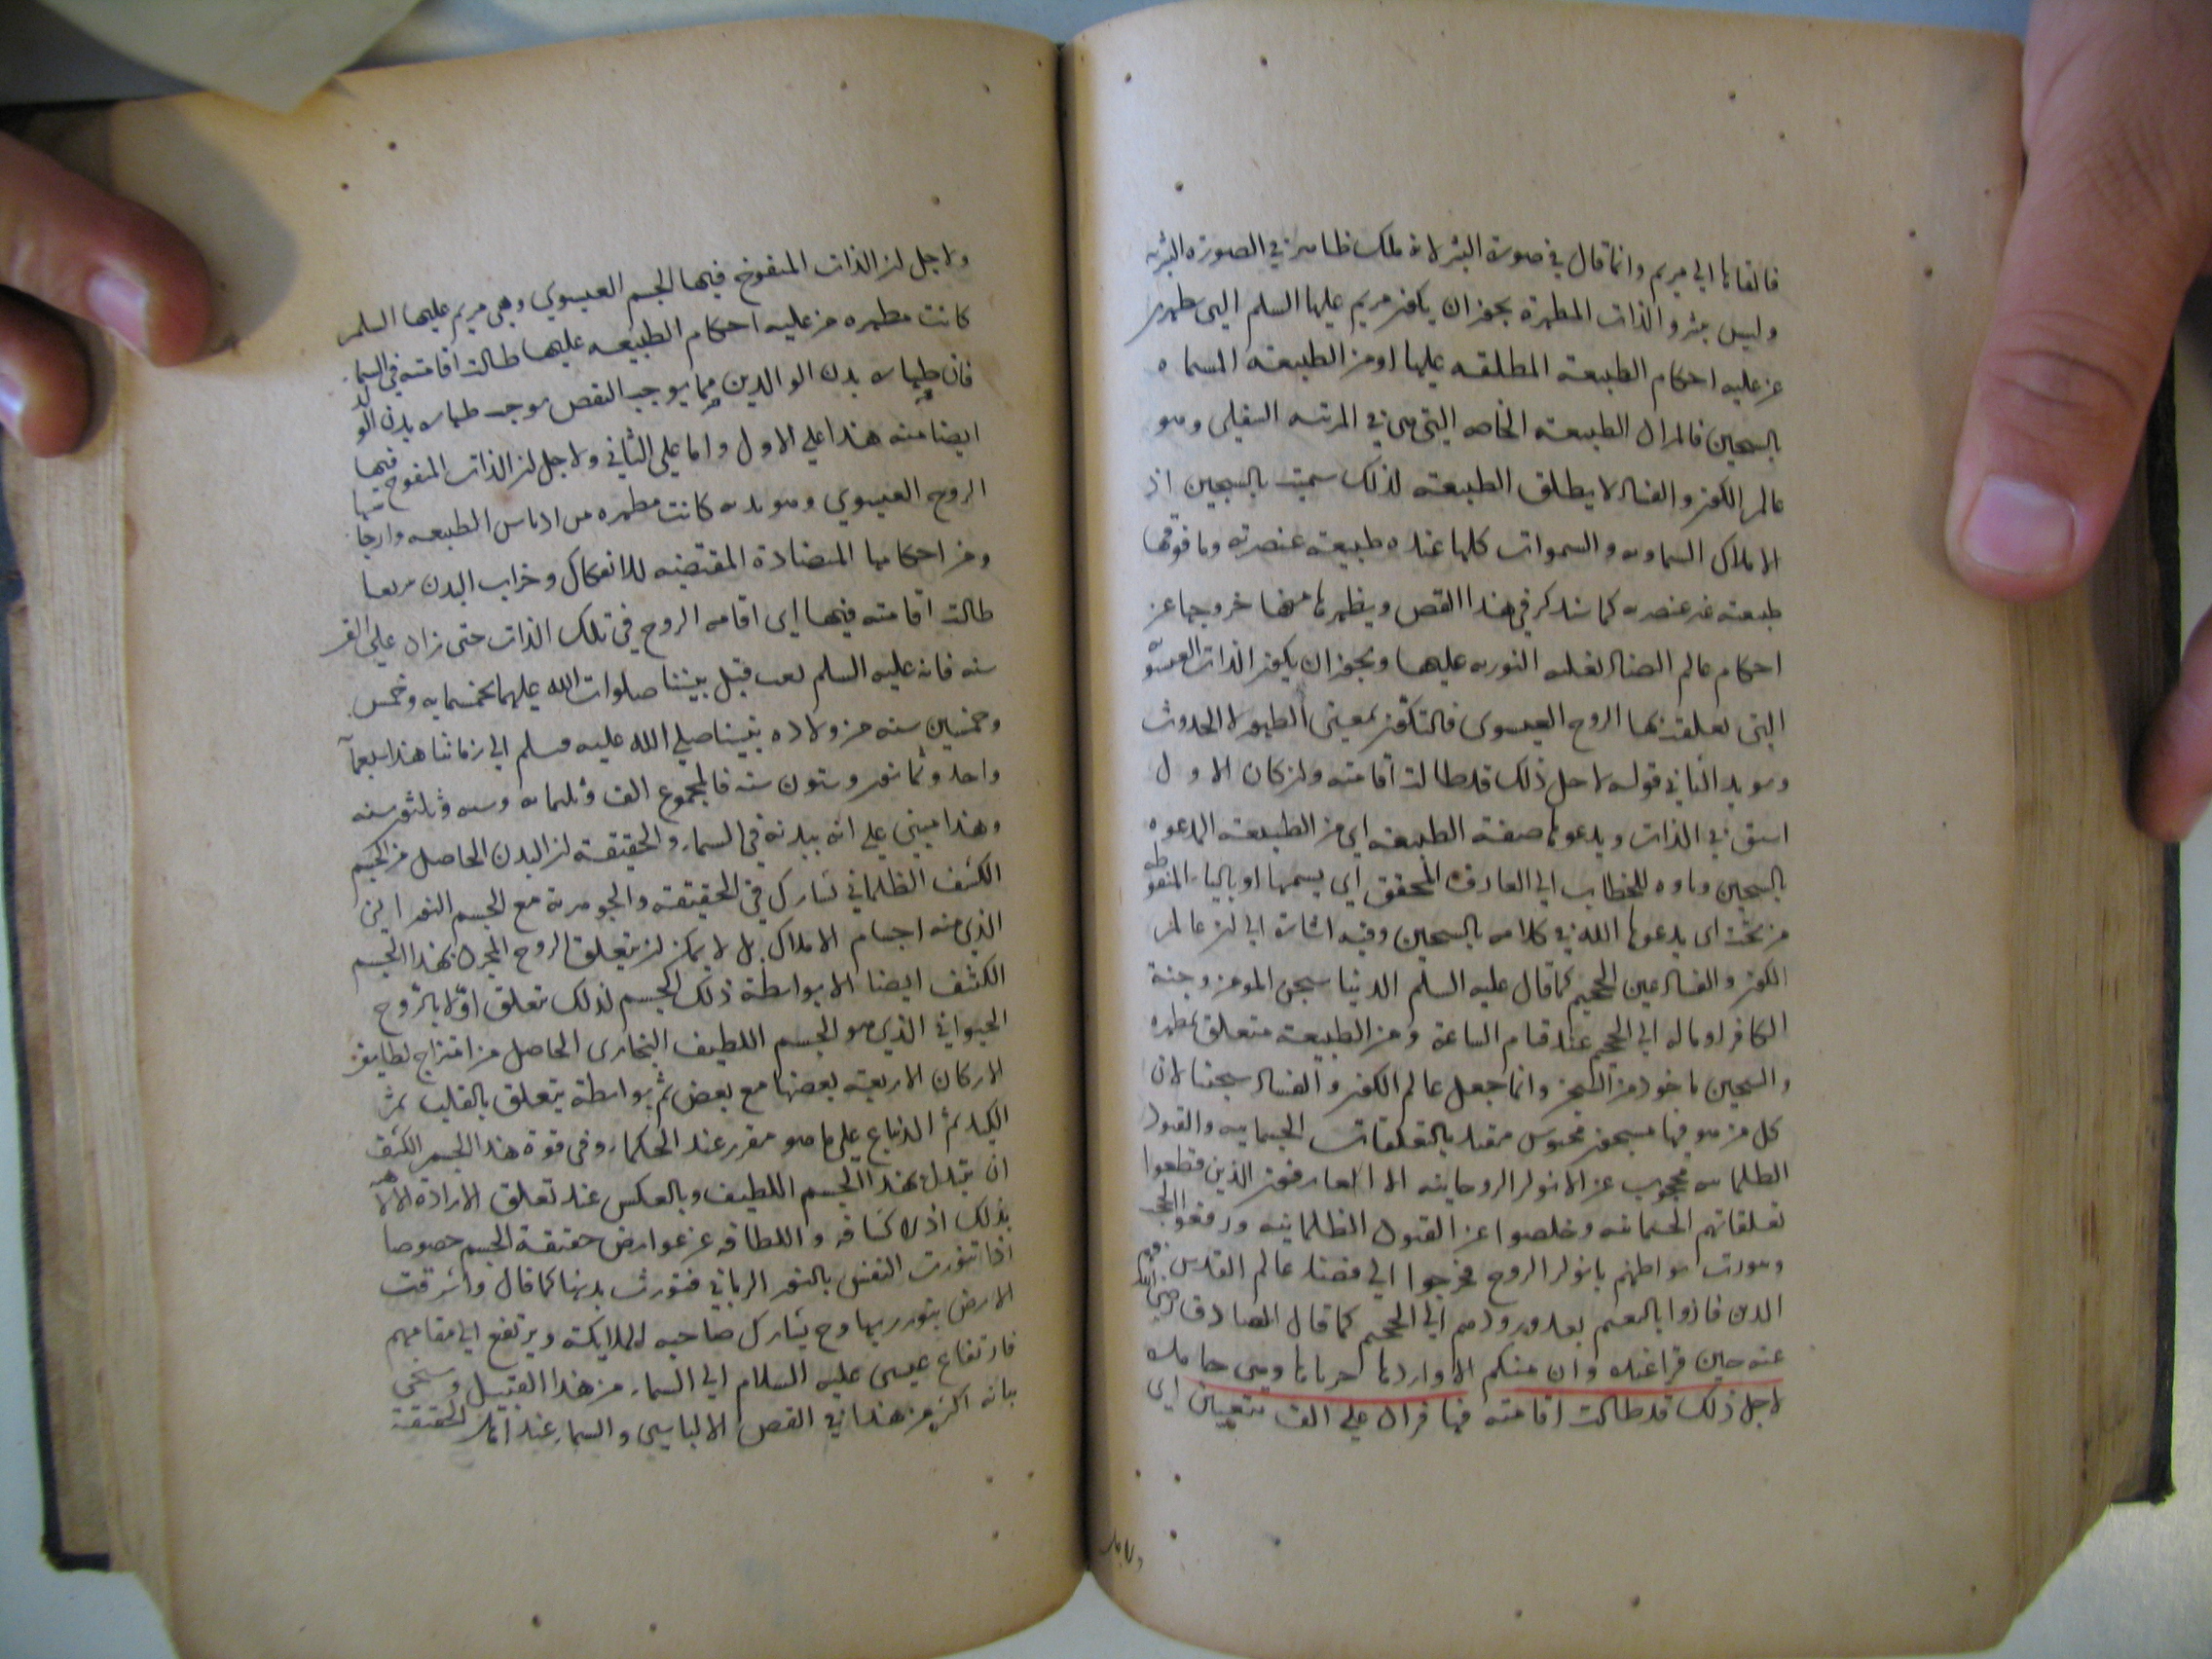 فالقاها الي مريم وانما قال في صورة البشر لانه ملك ظاهر في الصورة البشرية
وليس ببشر والذات المطهرة يجوز ان يكون مريم عليها السلم التي تطهرت
عن غلبه احكام الطبيعة المطلقه عليها او من الطبيعة المسماه
بالسجين فالمراد الطبيعة الخاصه التي هي في المرتبه السفلى وهو
عالم الكون والفساد لا مطلق الطبيعة لذلك سميت بالسجين اذ
الاملاك السماويه والسموات كلها عنده طبيعة عنصريه وما فوقها
طبيعة غير عنصريه كما سنذكر في هذا الفص وتطهرها منها خروجها عن
احكام عالم الفساد لغلبه النوريه عليها ويجوز ان يكون الذات العيسويه
التي تعلقت بها الروح العيسوى فالتكون بمعنى الظهور لا الحدوث
ويويد الثاني قوله لاجل ذلك قد طالت اقامته وان كان الاول
اسبق في الذات ويدعوها صفة الطبيعه اى من الطبيعة المدعوه
بالسجين وتاوه للخطاب الي العارف المحقق اى يسميها او بالياء المنقوطه
من تحت اى يدعوها الله في كلامه بالسجين وفيه اشاره الي ان عالم
الكون والفساد عين الجحيم كما قال عليه السلم الدنيا سجن المومن وجنة
الكافر او ماله الي الجحيم عند قيام الساعة ومن الطبيعة متعلق بمطهره
والسجين ماخوذ من السجن وانما جعل عالم الكون والفساد سجنا لان
كل من هو فيها مسجون محبوس مقيد بالتعلقات الجسمانيه والقيود
الظلمانيه محجوب عن الانوار الروحانية الا العارفون الذين قطعوا
تعلقاتهم الجسمانيه وخلصوا عن القيود الظلمانية ورفعوا الحجب
ونورت بواطنهم بانوار الروح فخرجوا الي فضاء عالم القدس فهم
الذين فازوا بالنعيم بعد ورودهم الي الجحيم كما قال الصادق رضي الله
عنه حين قرا عنده وان منكم الا واردها جزناها وهى خامده
لاجل ذلك قد طالت اقامته فيها فزاد علي الف بتعيين اى
ولاجل
ولاجل ان الذات المنفوخ فيها الجسم العيسوي وهي مريم عليها السلم
كانت مطهره من غلبه احكام الطبيعه عليها طالت اقامته في السماء
فان طهاره بدن الوالدين مما يوجب النقص يوجب طهاره بدن الولد
ايضا منه هذا علي الاول واما علي الثاني ولاجل ان الذات المنفوخ فيها
الروح العيسوي وهو بدنه كانت مطهره من ادناس الطبيعه وارجاسها
ومن احكامها المتضادة المقتضيه للانفكاك وخراب البدن سريعا
طالت اقامته فيها اى اقامه الروح في تلك الذات حتى زاد علي الف
سنه فانه عليه السلم بعث قبل نبينا صلوات الله عليهما بخمسمايه وخمس
وخمسين سنه من ولاده نبينا صلي الله عليه وسلم الي زماننا هذا سبعمايه
واحد وثمانون وستون سنه فالمجموع الف وثلثمايه وسته وثلثون سنه
وهذا مبني علي انه ببدنه في السماء والحقيقة ان البدن الحاصل من الجسم
الكثيف الظلماني تشارك في الحقيقة والجوهرية مع الجسم النوراني
الذي منه اجسام الاملاك بل لا يمكن ان يتعلق الروح المجرد بهذا الجسم
الكثيف ايضا الا بواسطة ذلك الجسم لذلك تعلق اولا بالروح
الحيواني الذي هو الجسم اللطيف البخارى الحاصل من امتزاج لطايف
الاركان الاربعة بعضها مع بعض ثم بواسطة يتعلق بالقلب ثم
الكبد ثم الدماغ علي ما هو مقرر عند الحكماء وفي قوة هذا الجسم الكثيف
ان يتبدل بهذا الجسم اللطيف وبالعكس عند تعلق الارادة الالاهيه
بذلك اذ الكثافه واللطافه من عوارض حقيقة الجسم خصوصا
اذا تنورت النفس بالنور الرباني فتنورت بدنها كما قال واشرقت
الارض بنور ربها وح يشارك صاحبه الملايكة ويرتفع الي مقامهم
فارتفاع عيسى عليه السلام الي السماء من هذا القبيل وسيجي
بيانه اكثر من هذا في الفص الالياسي والسماء عند اهل الحقيقة